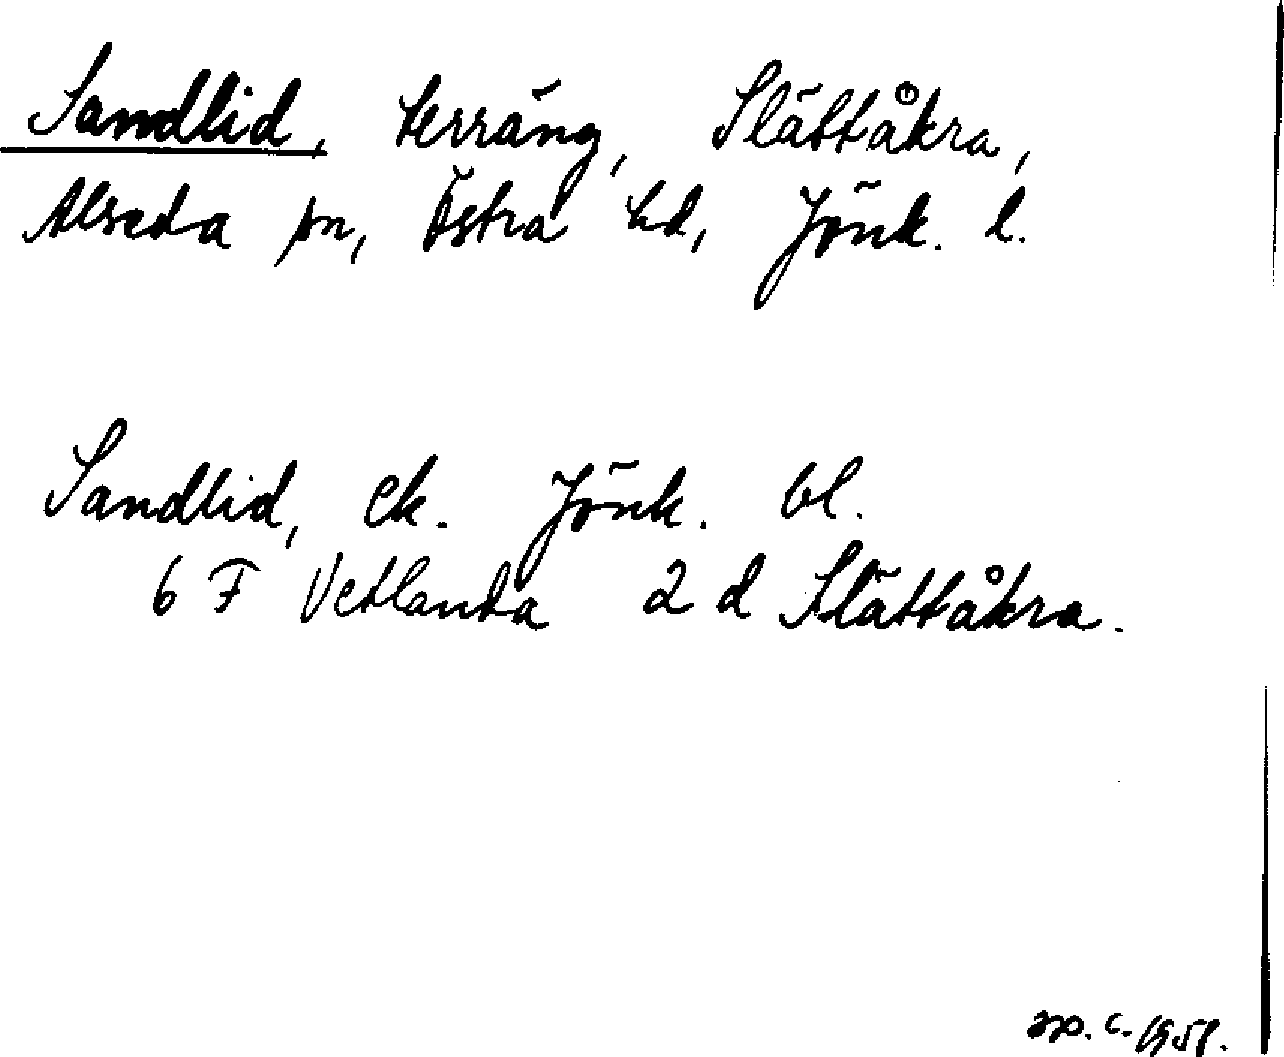 Sandlid, terräng, Slättåkra,
Alseda sn, Östra hd, Jönk. l.
Sandlid, ek. Jönk. bl.
6 F Vetlanda 2 d Slättåkra.
1958.